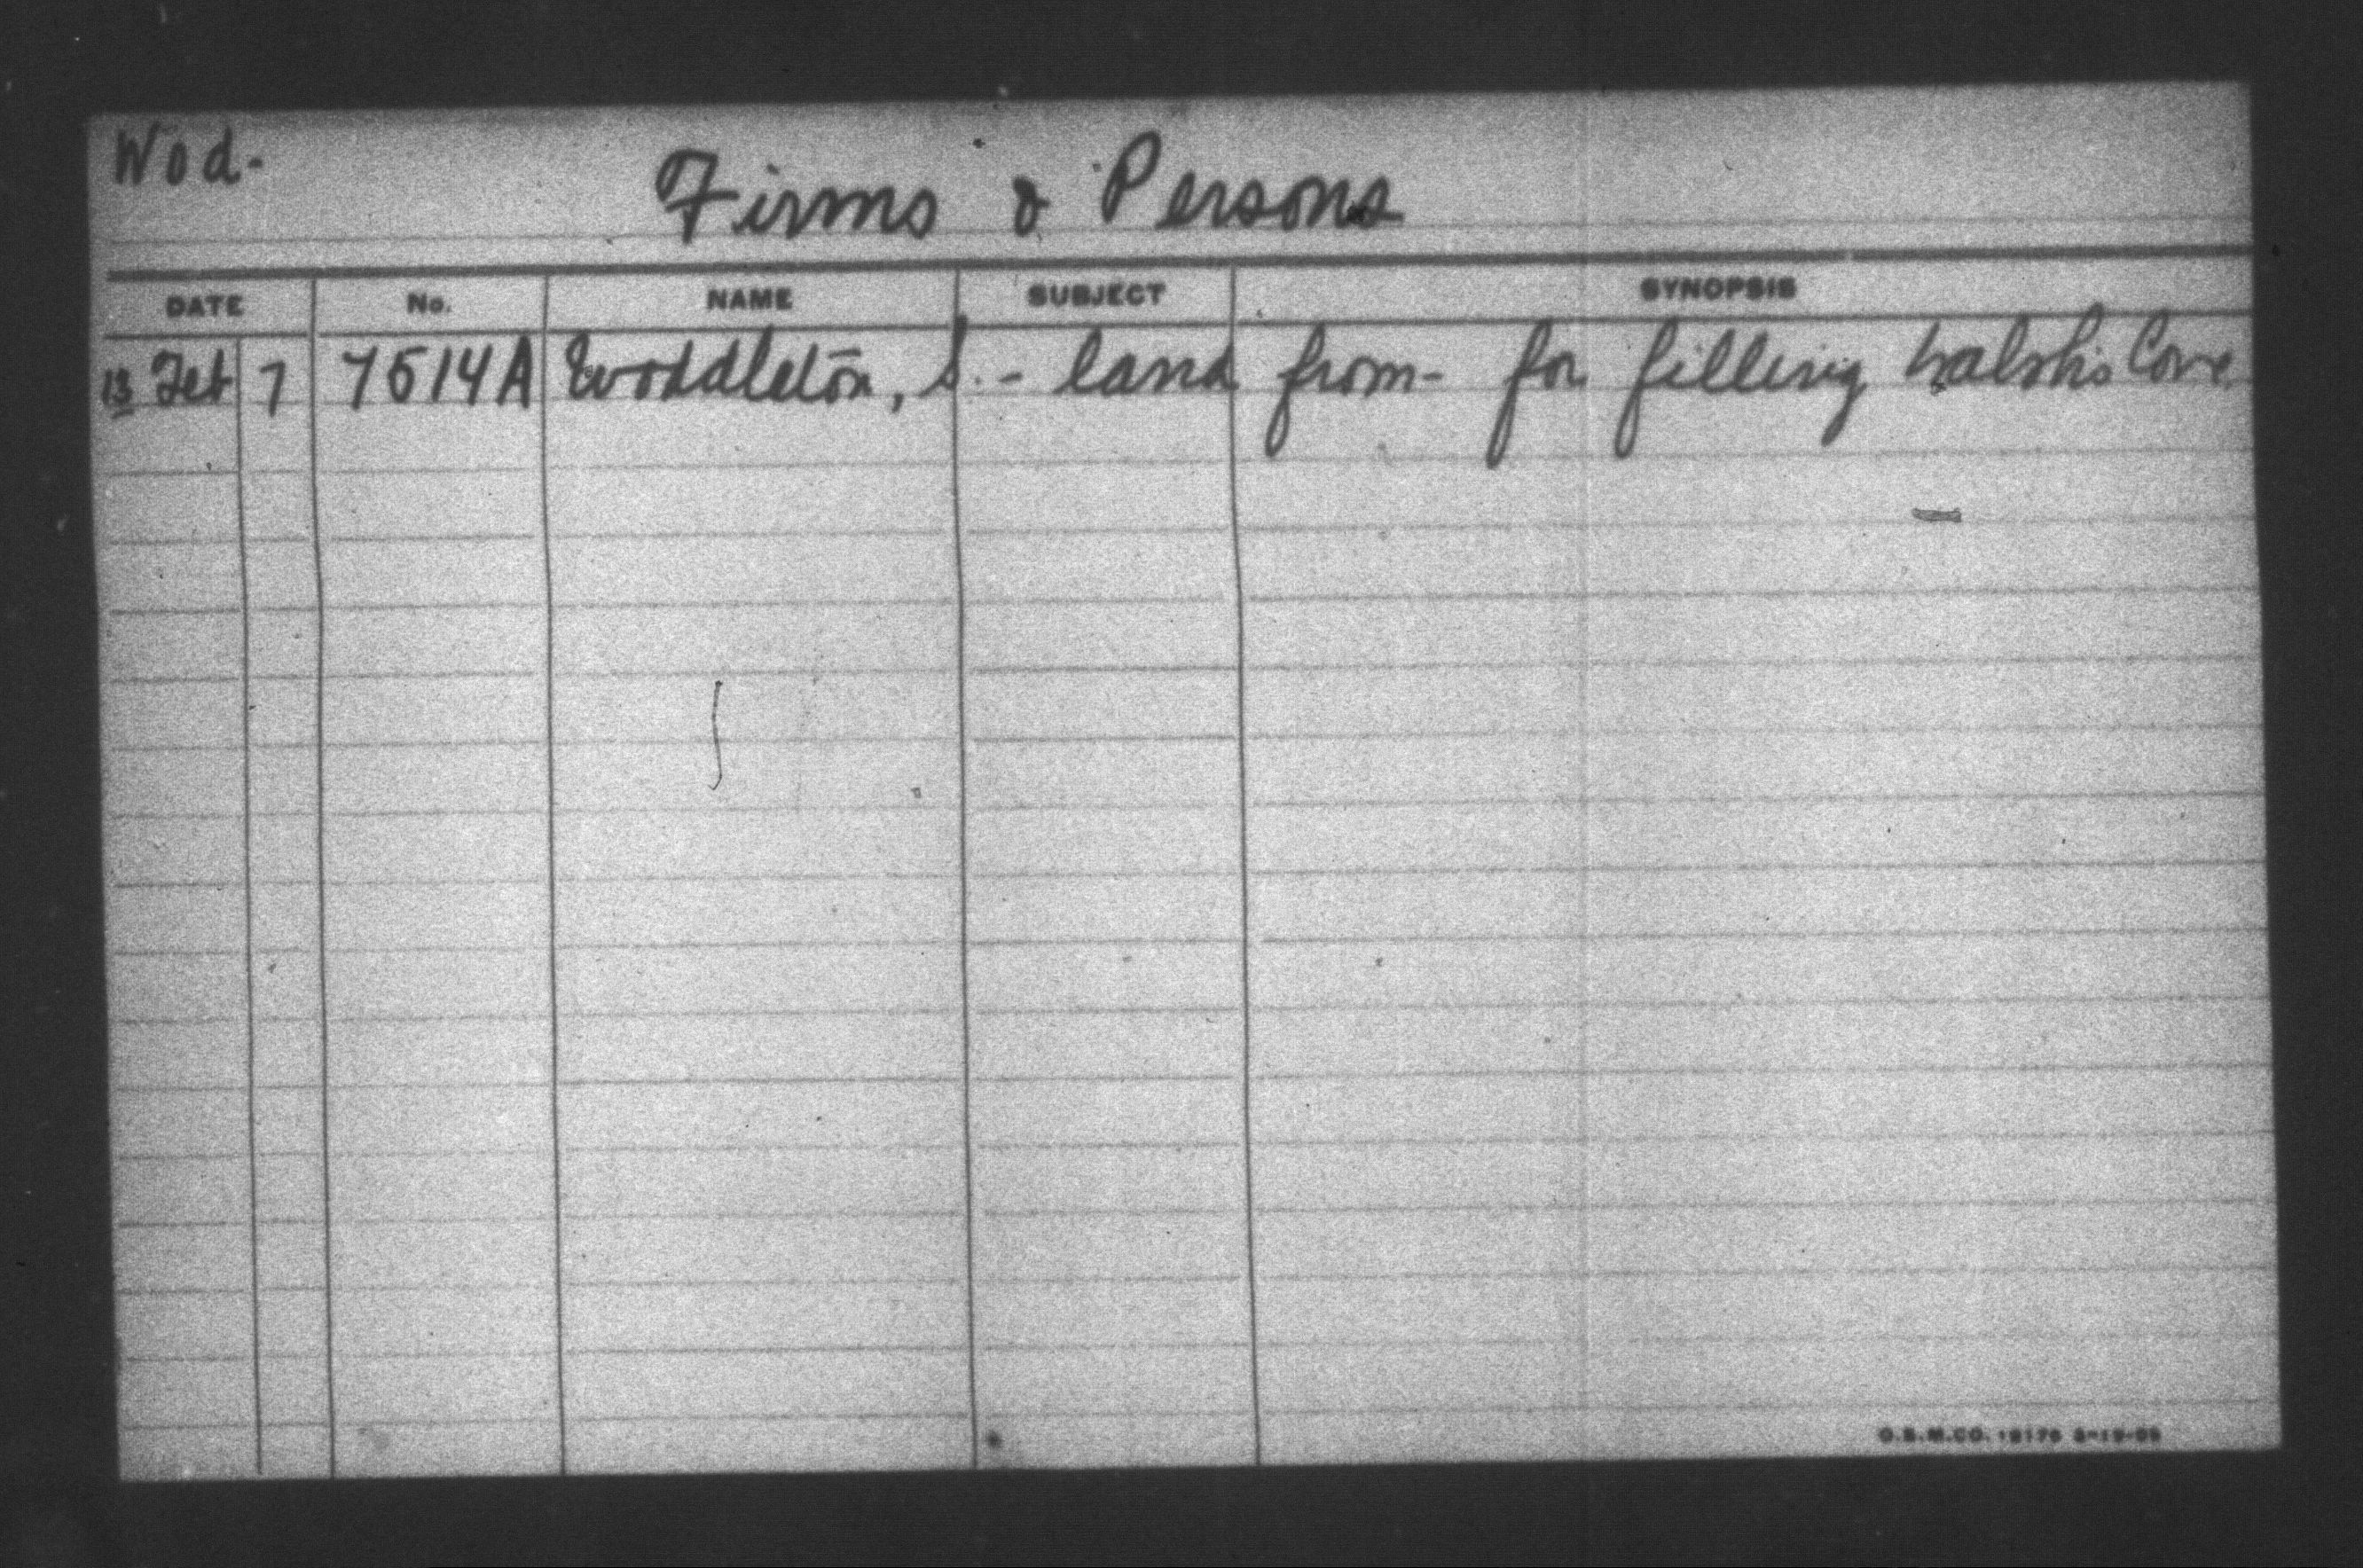 Wod-
Firms & Persons
DATE No. NAME SUBJECT SYNOPSIS
13 Feb 7 7514A Woddleton, S. - land from - for filling Walshs Cove